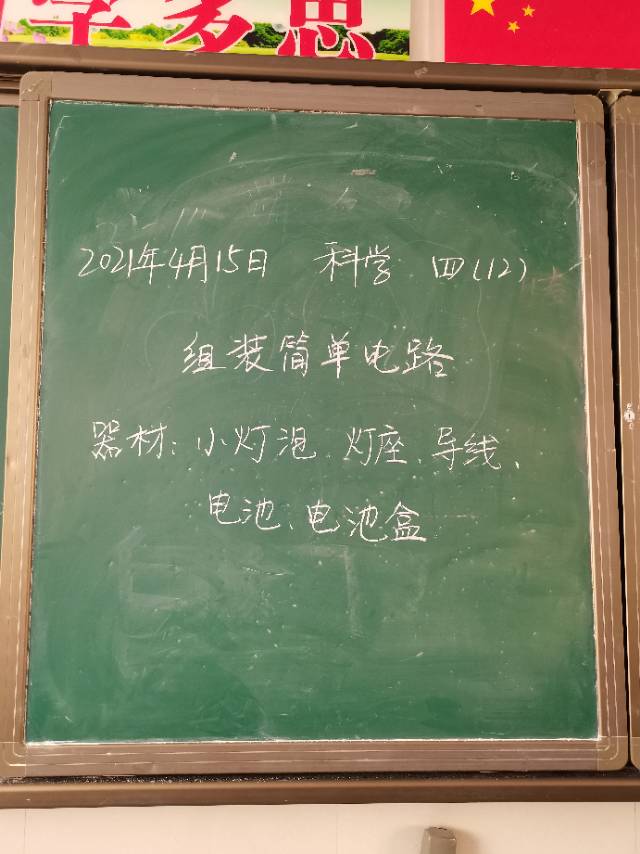 学多思
2021年4月15日 科学 四(12)
组装简单电路
器材:小灯泡、灯座、导线、
电池、电池盒